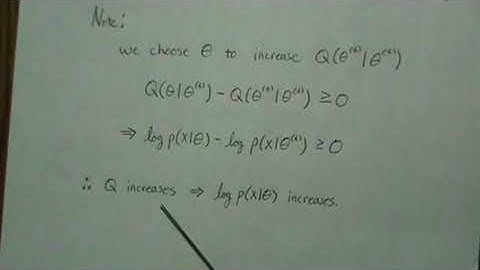 Note:
we choose θ to increase Q(θ⁽ᵗ⁾|θ⁽ᵗ⁾)
Q(θ|θ⁽ᵗ⁾) - Q(θ⁽ᵗ⁾|θ⁽ᵗ⁾) ≥ 0
⇒ log p(x|θ) - log p(x|θ⁽ᵗ⁾) ≥ 0
∴ Q increases ⇒ log p(x|θ) increases.